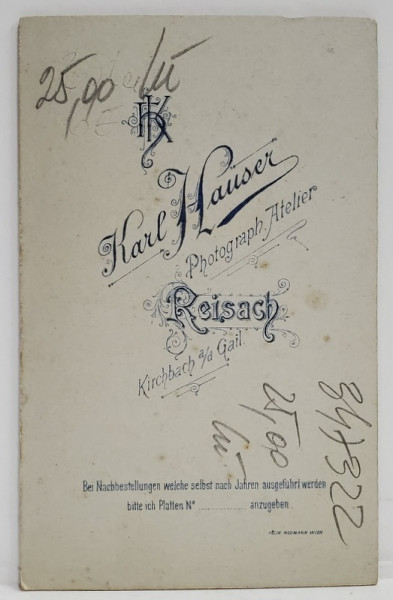 25,00
HK
Karl Hauser
Photograph. Atelier
Reisach
Kirchbach a/d Gail.
25,00
Bei Nachbestellungen welche selbst nach Jahren ausgeführt werden
bitte ich Platten Nº ............ anzugeben.